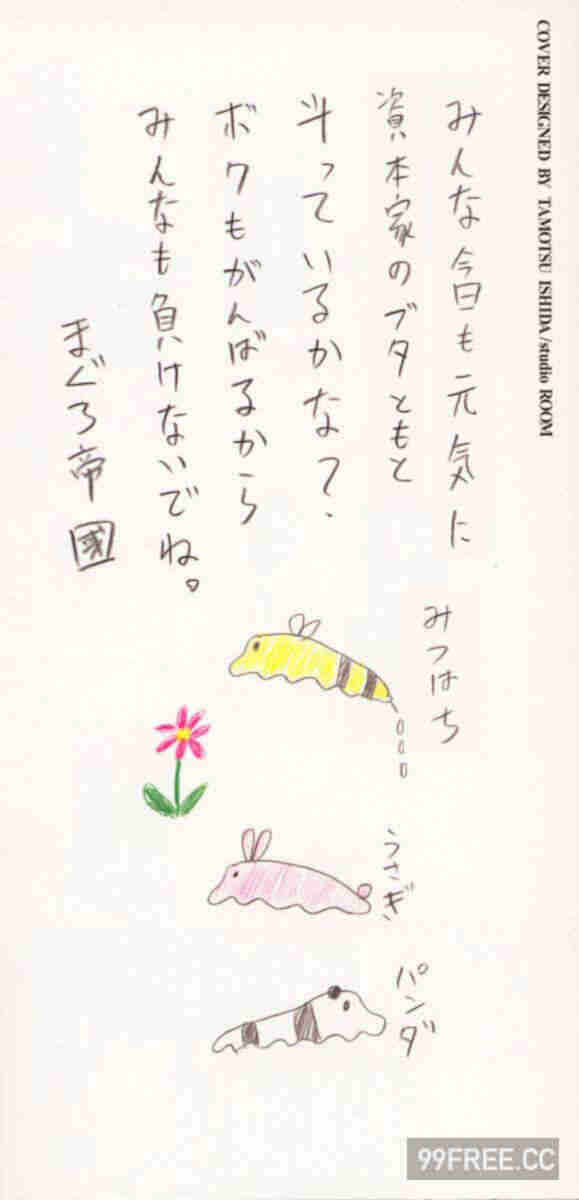 COVER DESIGNED BY TAMOTSU ISHIDA/studio ROOM
みんな今日も元気に
資本家のブタともと
斗っているかな?
ボクもがんばるから
みんなも負けないでね。
まぐろ帝國
みつはち
うさぎ
パンダ
99FREE.CC